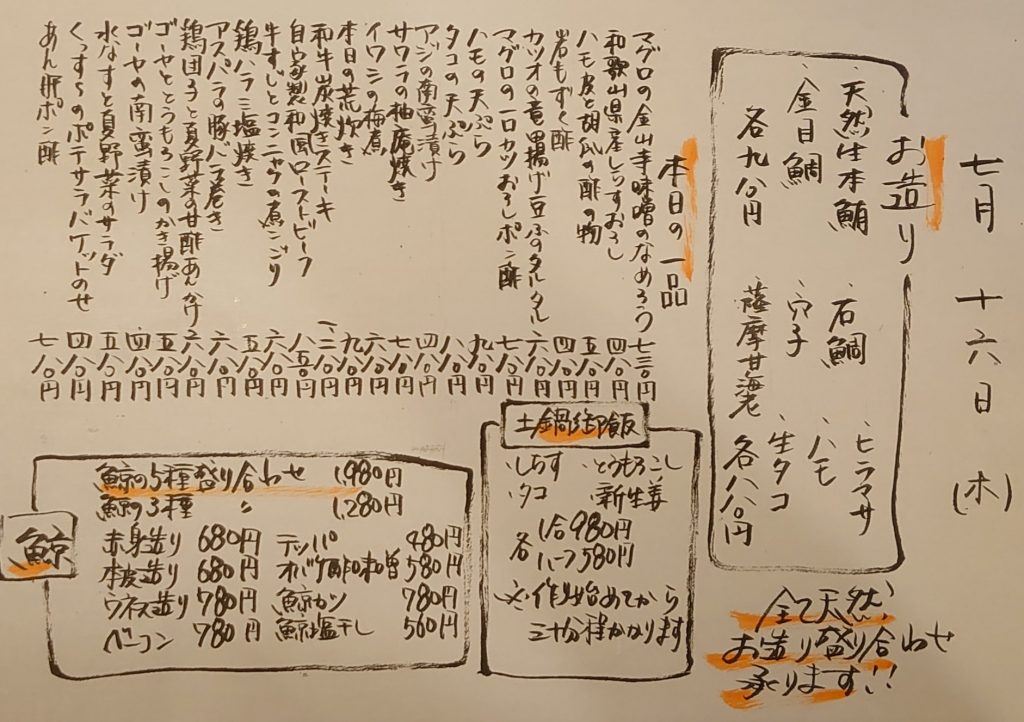 七月 十六日 (木)
お造り
天然生本鮪 石鯛 ヒラマサ
金目鯛 穴子 ハモ
各九八〇円 薩摩甘海老 生タコ 各八八〇円
全て天然
お造り盛り合わせ
承ります!!
本日の一品
マグロの金山寺味噌のなめろう 七三〇円
和歌山県産しらすおろし 四八〇円
ハモ皮と胡瓜の酢の物 五八〇円
岩もずく酢 四八〇円
カツオの竜田揚げ豆ふのタルタル 六八〇円
マグロの一口カツおろしポン酢 七八〇円
ハモの天ぷら 九八〇円
タコの天ぷら 八八〇円
アジの南蛮漬け 四八〇円
サワラの柚庵焼き 七八〇円
イワシの梅煮 六八〇円
本日の荒炊き 九八〇円
和牛炭焼きステーキ 一二八〇円
自家製和風ローストビーフ 八五〇円
牛すじとコンニャクの煮こごり 六八〇円
鶏ハラミ塩焼き 五八〇円
アスパラの豚バラ巻き 六八〇円
鶏団子と夏野菜の甘酢あんかけ 六八〇円
ゴーヤととうもろこしのかき揚げ 五八〇円
ゴーヤの南蛮漬け 四八〇円
水なすと夏野菜のサラダ 五八〇円
ポテサラバケットのせ 四八〇円
あん肝ポン酢 七八〇円
土鍋御飯
・しらす ・とうもろこし
・タコ ・新生姜
各 1合980円
ハーフ580円
※作り始めてから
三十分程かかります
鯨
鯨の5種盛り合わせ 1,980円
鯨の3種 〃 1,280円
赤身造り 680円 テッパ 480円
本皮造り 680円 オバケ酢味噌 580円
ウネス造り 780円 鯨カツ 780円
ベーコン 780円 鯨塩干し 560円